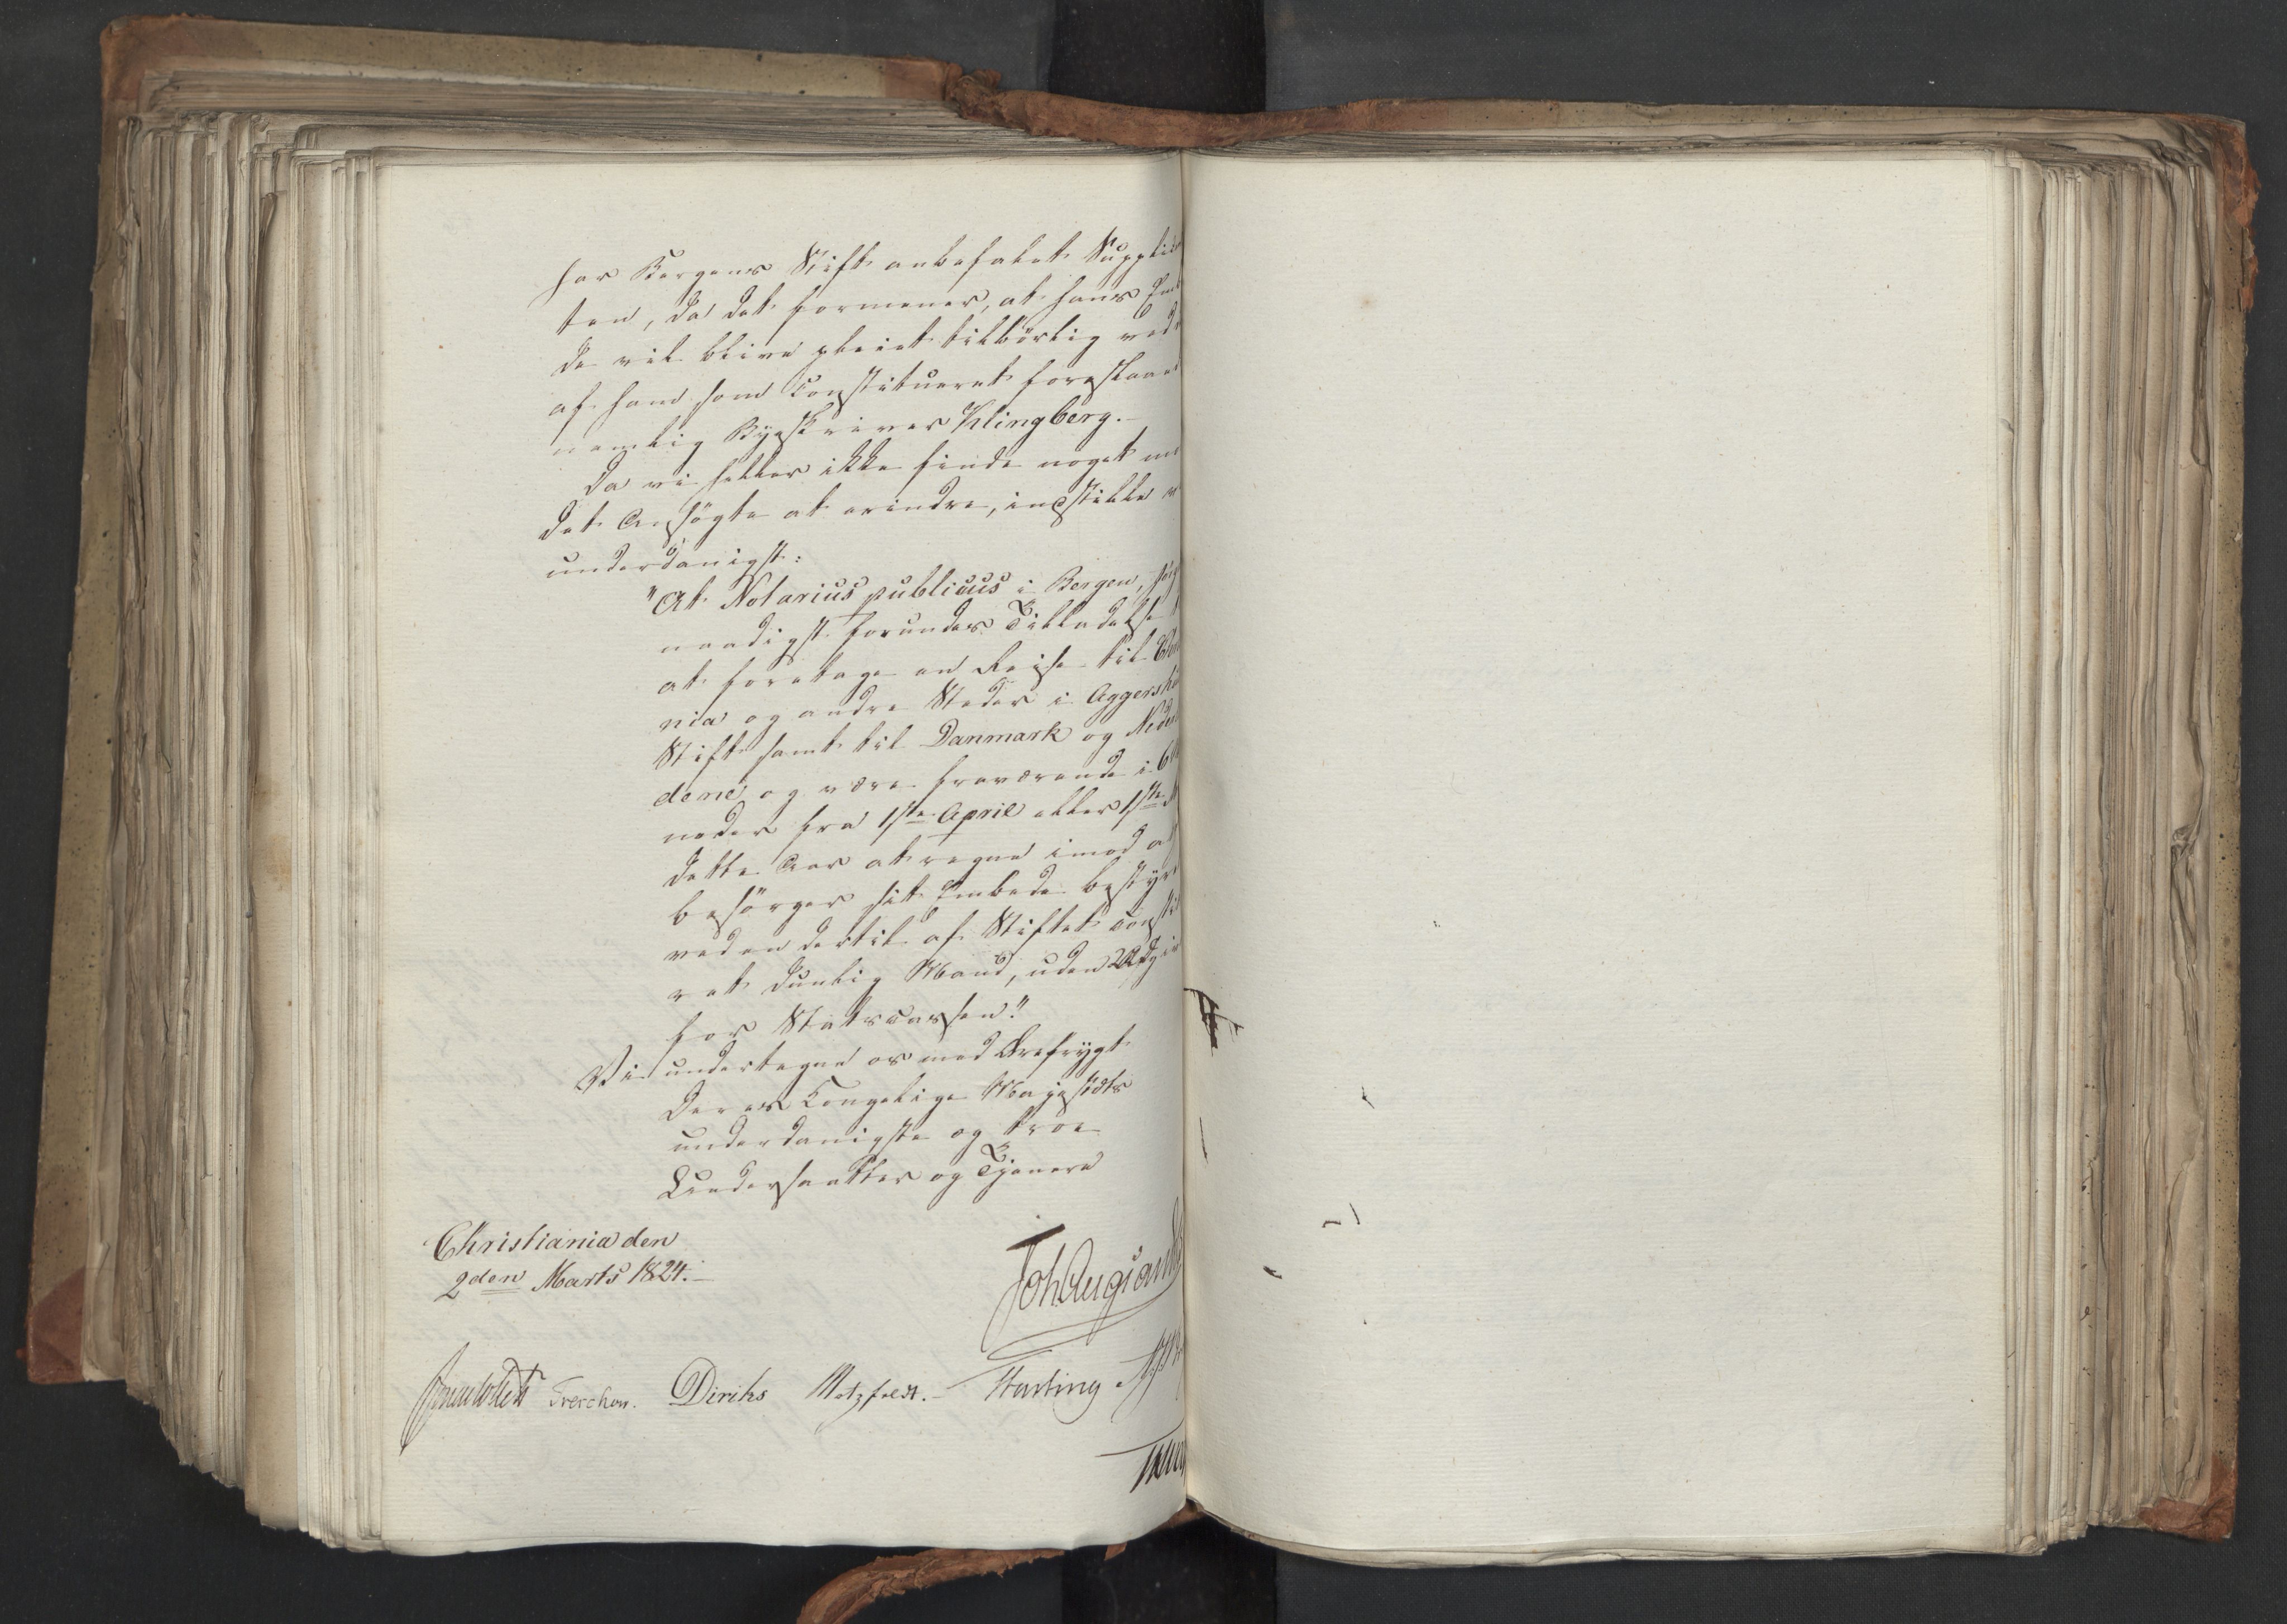 har Bergens Stift anbefalet Supplic
ten, da det formener, at hans Em
de vil blive pleiet tilbörlig ved
af ham som Constitueret foreslaaed
nemlig Byeskriver Klingberg.-
Da vi heller ikke finde noget mod
det Ansögte at erindre, indstille vi
underdanigst:
"At Notarius publicus i Bergen,
naadigst forundes Tilladelse
at foretage en Reise til Chri
nia og andre Steder i Aggershu
Stift samt til Danmark og Neder
dene og være fraværende i 6
neder fra 1ste April eller 1ste M
dette Aar at regne imod at
besörger sit Embede bestyre
ved en dertil af Stiftet consti
ret duelig Mand, uden Udgi
for Statscassen."
Vi undertegne os med Ærefrygt
Deres Kongelige Majestæts
underdanigste og troe
Undersaatter og Tjenere
Christiania den
2den Marts 1824.-
Joh Aug Sand
Sommerhielm Treschow. Diriks Motzfeldt.- Fasting